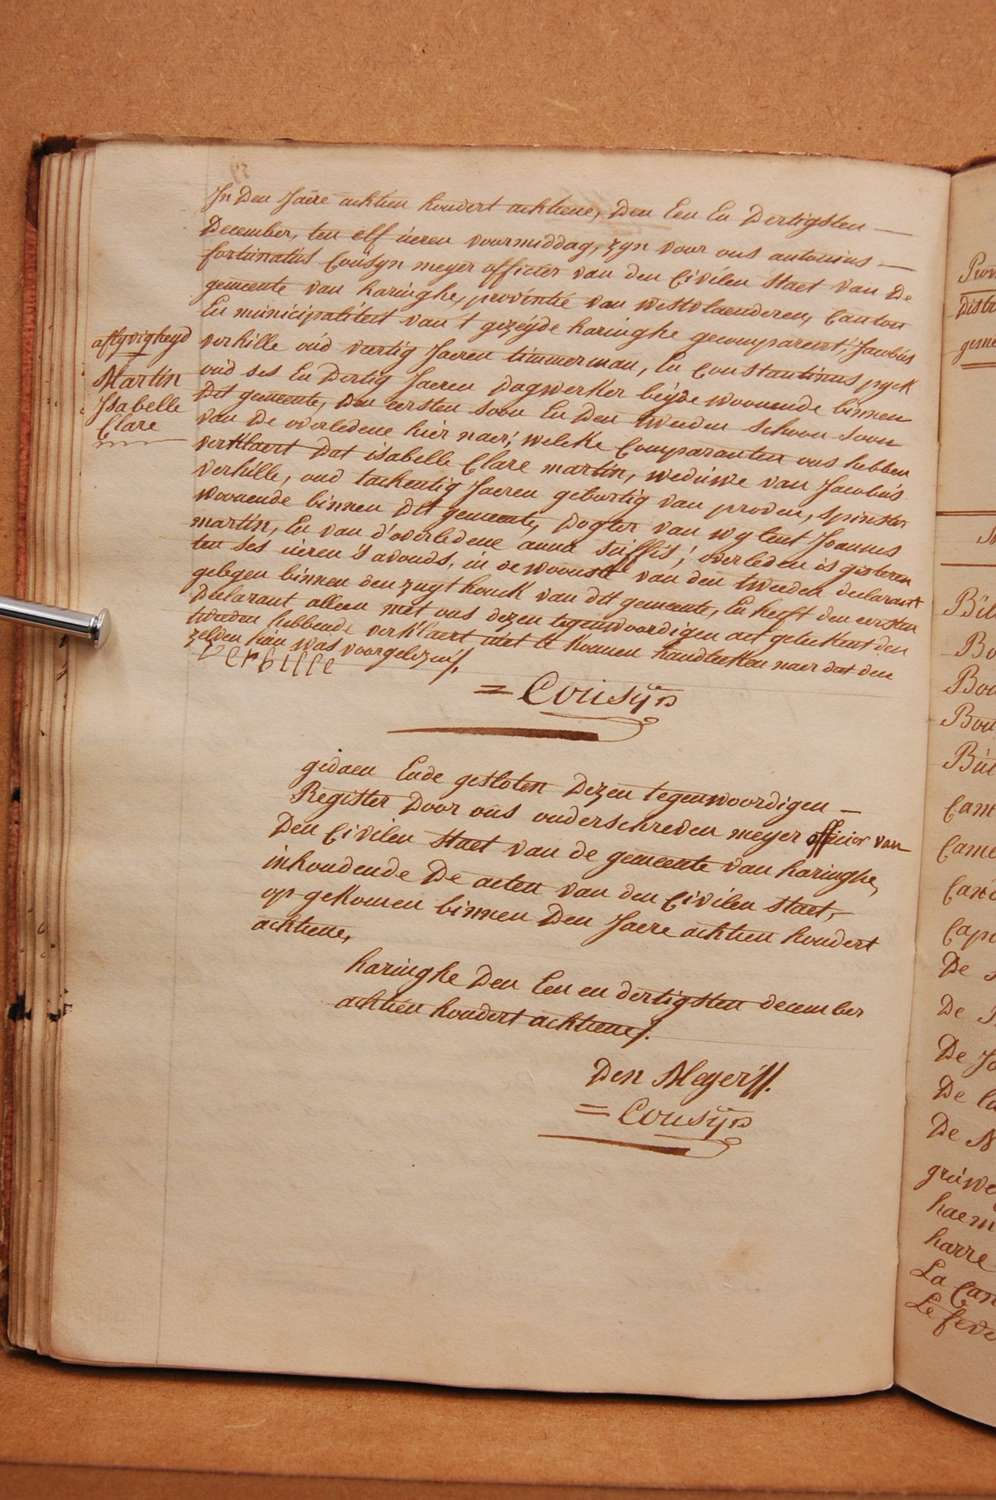 In Den Jaere achtien hondert achtiene, Den Een En Dertigsten —
December, ten elf ueren voormiddag, zyn voor ons antonius —
fortunatus Cousyn meyer officier van den Civilen Staet van De
gemeente van haringhe, provintie van westvlaenderen, Canton
En municipaliteit van t gezeyde haringhe gecompareert Jacobus
verhille oud veertig Jaeren timmerman, En Constantinus pyck
oud ses En Dertig Jaeren dagwerker beyde woonende binnen
Dit gemeente, den eersten soon En Den tweeden schoon soon
van De overledene hier naer; welcke Comparanten ons hebben
verklaert Dat isabelle Clare martin, weduwe van Jacobus
verhille, oud tachentig Jaeren gebortig van proven, spinster
woonende binnen Dit gemeente, Dogter van wylent Joannes
martin, En van d'overledene anna; overleden is gisteren
ten ses ueren s'avonds, in de woonste van den tweeden declarant
gelegen binnen den zuythouck van dit gemeente, En heeft den eersten
Declarant alleen met ons dezen tegenwoordigen act geteekent den
tweeden hebbende verklaert niet te konnen handteeken naer dat den
zelven hun was voorgelezen/.
verhille
= Cousyn
aflyvigheyd
Martin
Isabelle
Clare
gedaen Ende gesloten Dezen tegenwoordigen —
Register Door ons onderschreven meyer officier van
Den Civilen Staet van de gemeente van haringhe,
inhoudende De acten van den Civilen Staet,
op gekomen binnen Den Jaere achtien hondert
achtiene,
haringhe Den Een en dertigsten december
achtien hondert achtiene/.
Den Meyer//.
= Cousyn
gem
Bo
Cam
Came
Cap
De
De
De J
De la
De N
haem
harre
La Can
Le fev